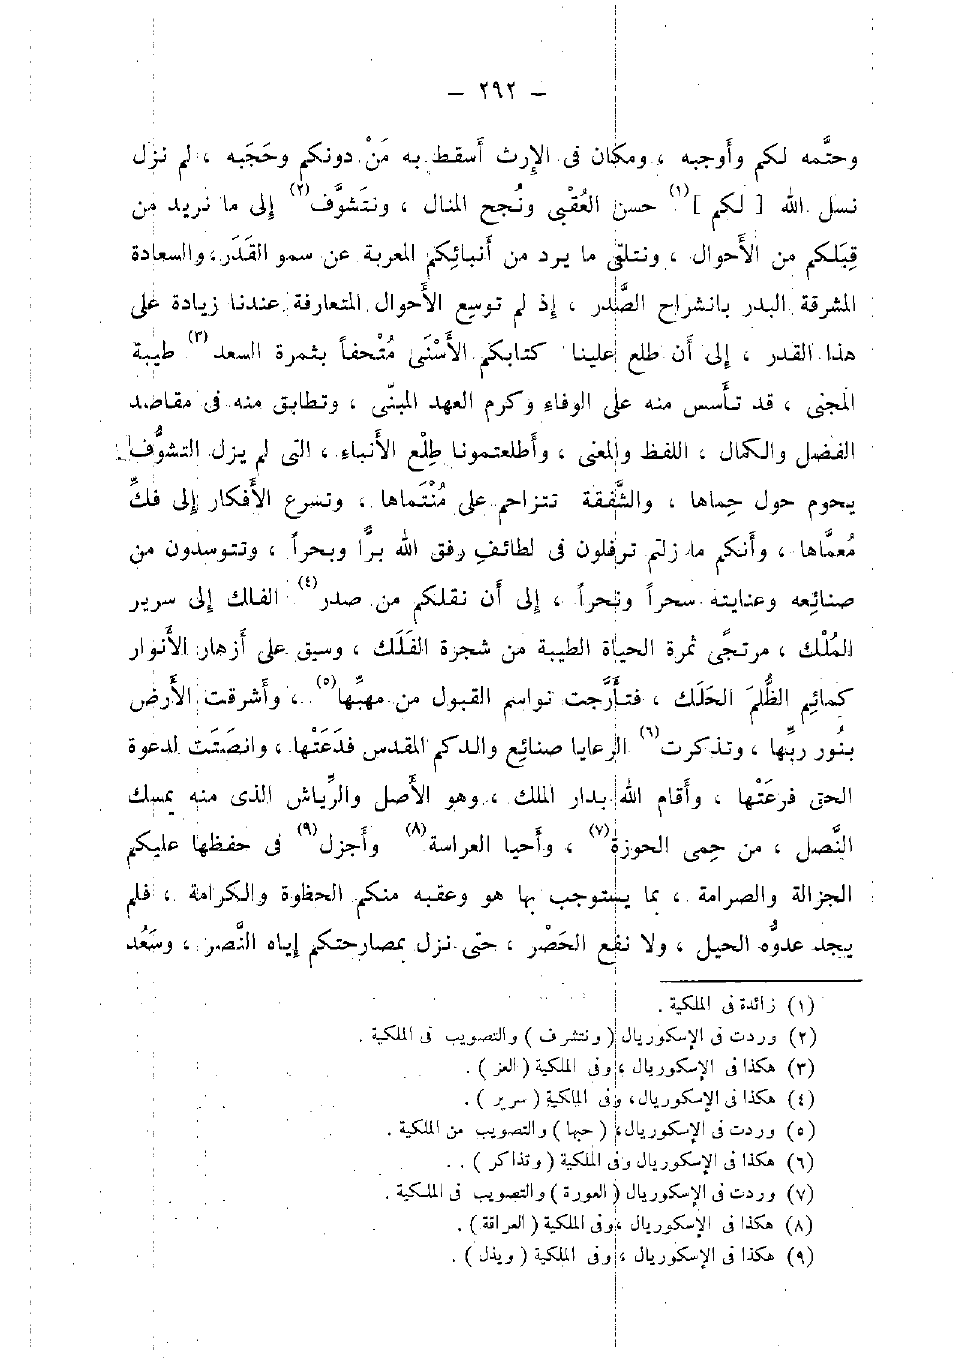 — ٢٩٢ —
وحتَّمه لكم وأوجبه ، ومكان فى الإرث أسقط به مَنْ دونكم وحَجَبه ، لم نزل
نسل الله [ لكم ](١) حسن العُقْبى ونُجح المنال ، ونتَشوَّف(٢) إلى ما نريد من
قِبَلكم من الأَحوال ، ونتلقى ما يرد من أَنبائِكم المعربة عن سمو القَدَر، والسعادة
المشرقة البدر بانشراح الصَّدر ، إذ لم توسع الأَحوال المتعارفة عندنا زيادة على
هذا القدر ، إلى أَن طلع علينا كتابكم الأَسْنَى مُتْحفاً بثمرة السعد(٣) طيبة
المجنى ، قد تأَسس منه على الوفاءِ وكرم العهد المبنّى ، وتطابق منه فى مقاصد
الفضل والكمال ، اللفظ والمعنى ، وأَطلعتمونا طِلْع الأَنباءِ ، التى لم يزل التشوُّف
يحوم حول حِماها ، والشَّفقة تتزاحم على مُنْتَماها ، وتسرع الأَفكار إلى فكِّ
مُعمَّاها ، وأَنكم ما زلتم ترفلون فى لطائف رفق الله برًّا وبحراً ، وتتوسدون من
صنائعه وعنايته سحراً ونحراً ، إلى أَن نقلكم من صدر(٤) الفلك إلى سرير
المُلْك ، مرتجًى ثمرة الحياة الطيبة من شجرة الفَلَك ، وسيق على أَزهار الأَنوار
كمائِم الظُّلَم الحَلَك ، فتأَرَّجت نواسم القبول من مهبِّها(٥) ، وأَشرقت الأَرض
بنُور ربِّها ، وتذكرت(٦) الرعايا صنائع والدكم المقدس فدَعَتْها ، وانصَتَت لدعوة
الحق فرعَتْها ، وأَقام الله بدار الملك ، وهو الأَصل والرِّياش الذى منه يمسك
النَّصل ، من حِمى الحوزة(٧) ، وأَحيا العراسة(٨) وأَجزل(٩) فى حفظها عليكم
الجزالة والصرامة ، بما يستوجب بها هو وعقبه منكم الحظوة والكرامة ، فلم
يجد عدوُّه الحيل ، ولا نفع الحَصْر ، حتى نزل بمصارحتكم إياه النَّصر ، وسَعُد
(١) زائدة فى الملكية .
(٢) وردت فى الإسكوريال ( ونتشرف ) والتصويب فى الملكية .
(٣) هكذا فى الإسكوريال ، وفى الملكية ( العز ) .
(٤) هكذا فى الإسكوريال، وفى الملكية ( سرير ) .
(٥) وردت فى الإسكوريال، ( حبها ) والتصويب من الملكية .
(٦) هكذا فى الإسكوريال وفى الملكية ( وتذاكر ) .
(٧) وردت فى الإسكوريال ( العورة ) والتصويب فى الملكية .
(٨) هكذا فى الإسكوريال ، وفى الملكية ( العراقة ) .
(٩) هكذا فى الإسكوريال ، وفى الملكية ( ويذل ) .